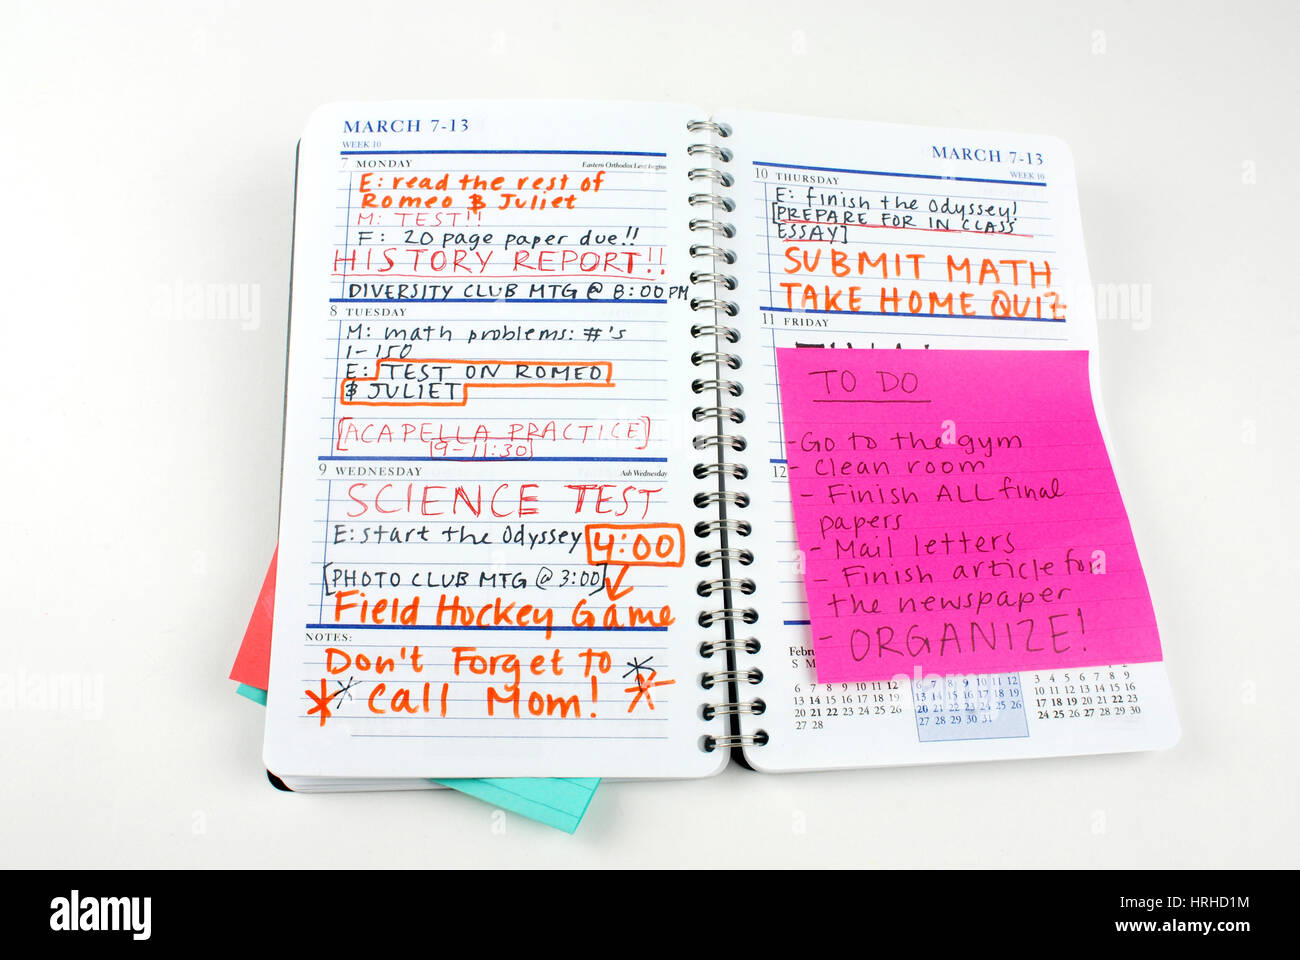 MARCH 7-13
WEEK 10
7 MONDAY
Eastern Orthodox Lent begins
E: read the rest of
Romeo & Juliet
M: TEST!!
F: 20 page paper due!!
HISTORY REPORT!!
DIVERSITY CLUB MTG @ 8:00 PM
8 TUESDAY
M: math problems: #'s
1-150
E: TEST ON ROMEO
& JULIET
[ACAPELLA PRACTICE]
9-11:30
9 WEDNESDAY
Ash Wednesday
SCIENCE TEST
E: start the Odyssey 4:00
[PHOTO CLUB MTG @ 3:00]
Field Hockey Game
NOTES:
Don't Forget to
Call Mom!
MARCH 7-13
WEEK 10
10 THURSDAY
E: finish the Odyssey!
[PREPARE FOR IN CLASS
ESSAY]
SUBMIT MATH
TAKE HOME QUIZ
11 FRIDAY
12
TO DO
- Go to the gym
- Clean room
- Finish ALL final
papers
- Mail letters
- Finish article for
the newspaper
- ORGANIZE!
Febru
S M
6 7 8 9 10 11 12
13 14 15 16 17 18 19
20 21 22 23 24 25 26
27 28
6 7 8 9 10 11 12
13 14 15 16 17 18 19
20 21 22 23 24 25 26
27 28 29 30 31
1 2
3 4 5 6 7 8 9
10 11 12 13 14 15 16
17 18 19 20 21 22 23
24 25 26 27 28 29 30
alamy
a
alamy
Image ID: HRHD1M
www.alamy.com